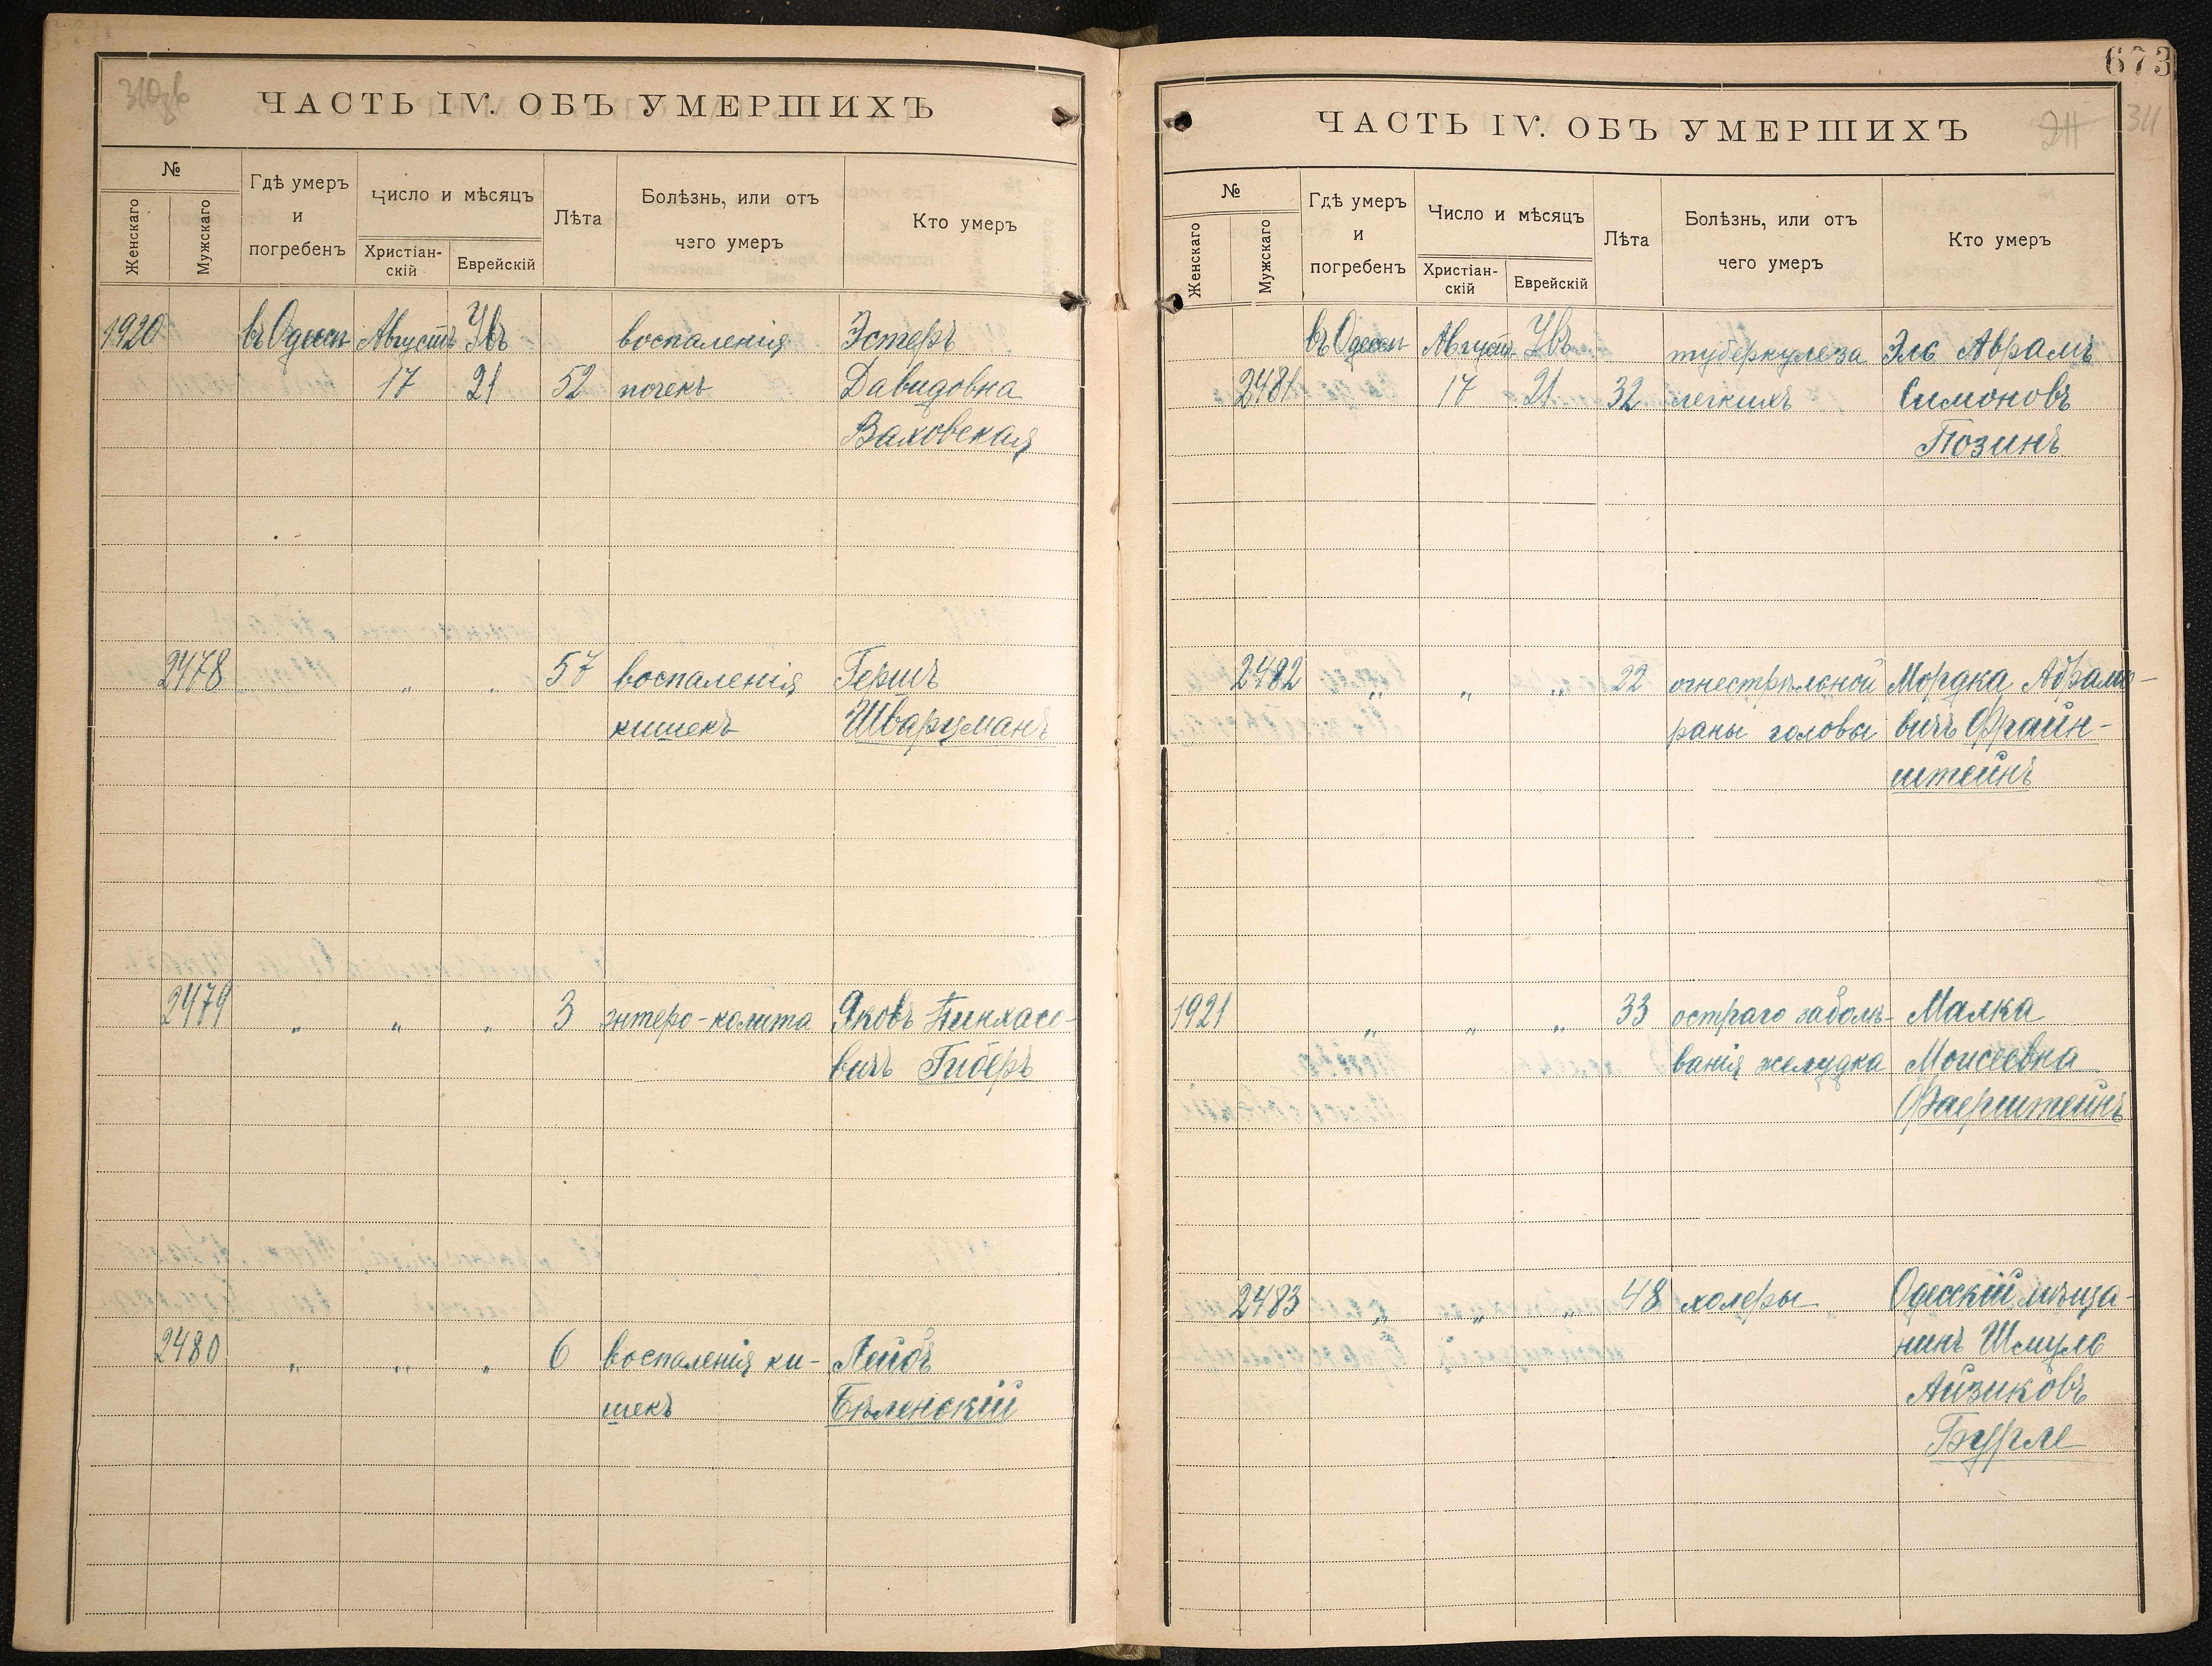 ЧАСТЬ IV. ОБЪ УМЕРШИХЪ
№
Женскаго
Мужскаго
Гдѣ умеръ
и
погребенъ
Число и мѣсяцъ
Христіан-
скій
Еврейскій
Лѣта
Болѣзнь, или отъ
чего умеръ
Кто умеръ
1920 въ Одессѣ Августъ Увъ воспаленія Эстеръ
17 21 52 почекъ Давидовна
Ваховская
2478 „ „ 57 воспаленія Гершъ
кишекъ Шварцманъ
2479 „ „ „ 3 энтеро-колита Яковъ Пинхасо-
вичъ Гиберъ
2480 „ „ „ 6 воспаленія ки- Лейбъ
шекъ Бѣленскій
673
311
ЧАСТЬ IV. ОБЪ УМЕРШИХЪ
№
Женскаго
Мужскаго
Гдѣ умеръ
и
погребенъ
Число и мѣсяцъ
Христіан-
скій
Еврейскій
Лѣта
Болѣзнь, или отъ
чего умеръ
Кто умеръ
въ Одессѣ Августъ Увъ туберкулеза Эль Аврамъ
2481 17 21 32 легкихъ Симоновъ
Позинъ
2482 „ „ „ 22 огнестрѣльной Мордка Абрамо-
раны головы вичъ Файн-
штейнъ
1921 „ „ „ 33 остраго заболѣ- Малка
ванія желудка Моисеевна
Фаерштейнъ
2483 „ „ „ 48 холеры Одесскій мѣща-
нинъ Шмуль
Айзиковъ
Бурле